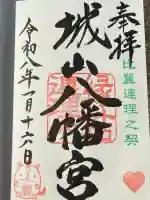 奉拝
比翼連理之契
城山八幡宮
令和八年一月十六日